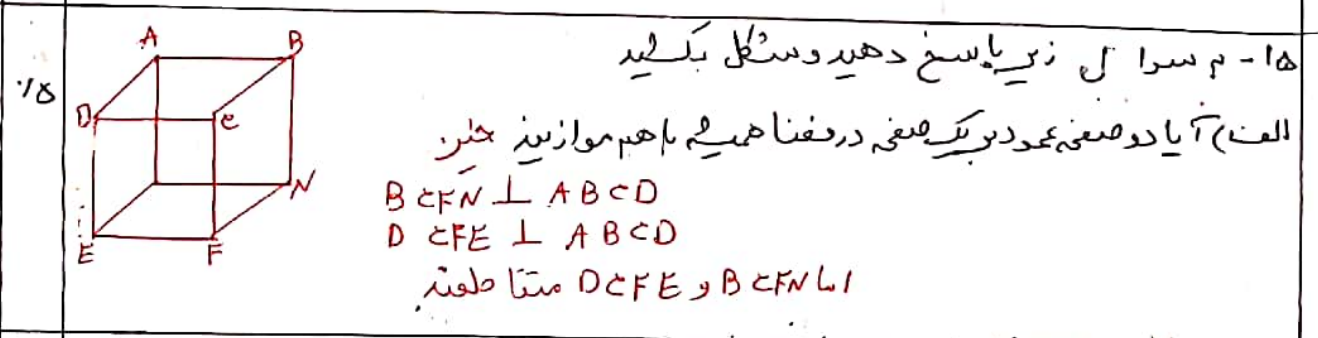 ۱۵- به سوال زیر پاسخ دهید و شکل بکشید
۰/۵
الف) آیا دو صفحه عمود بر یک صفحه در فضا همیشه با هم موازیند خیر
A B
D C
N
E F
BCFN ⊥ ABCD
DCFE ⊥ ABCD
اما BCFN و DCFE متقاطعند